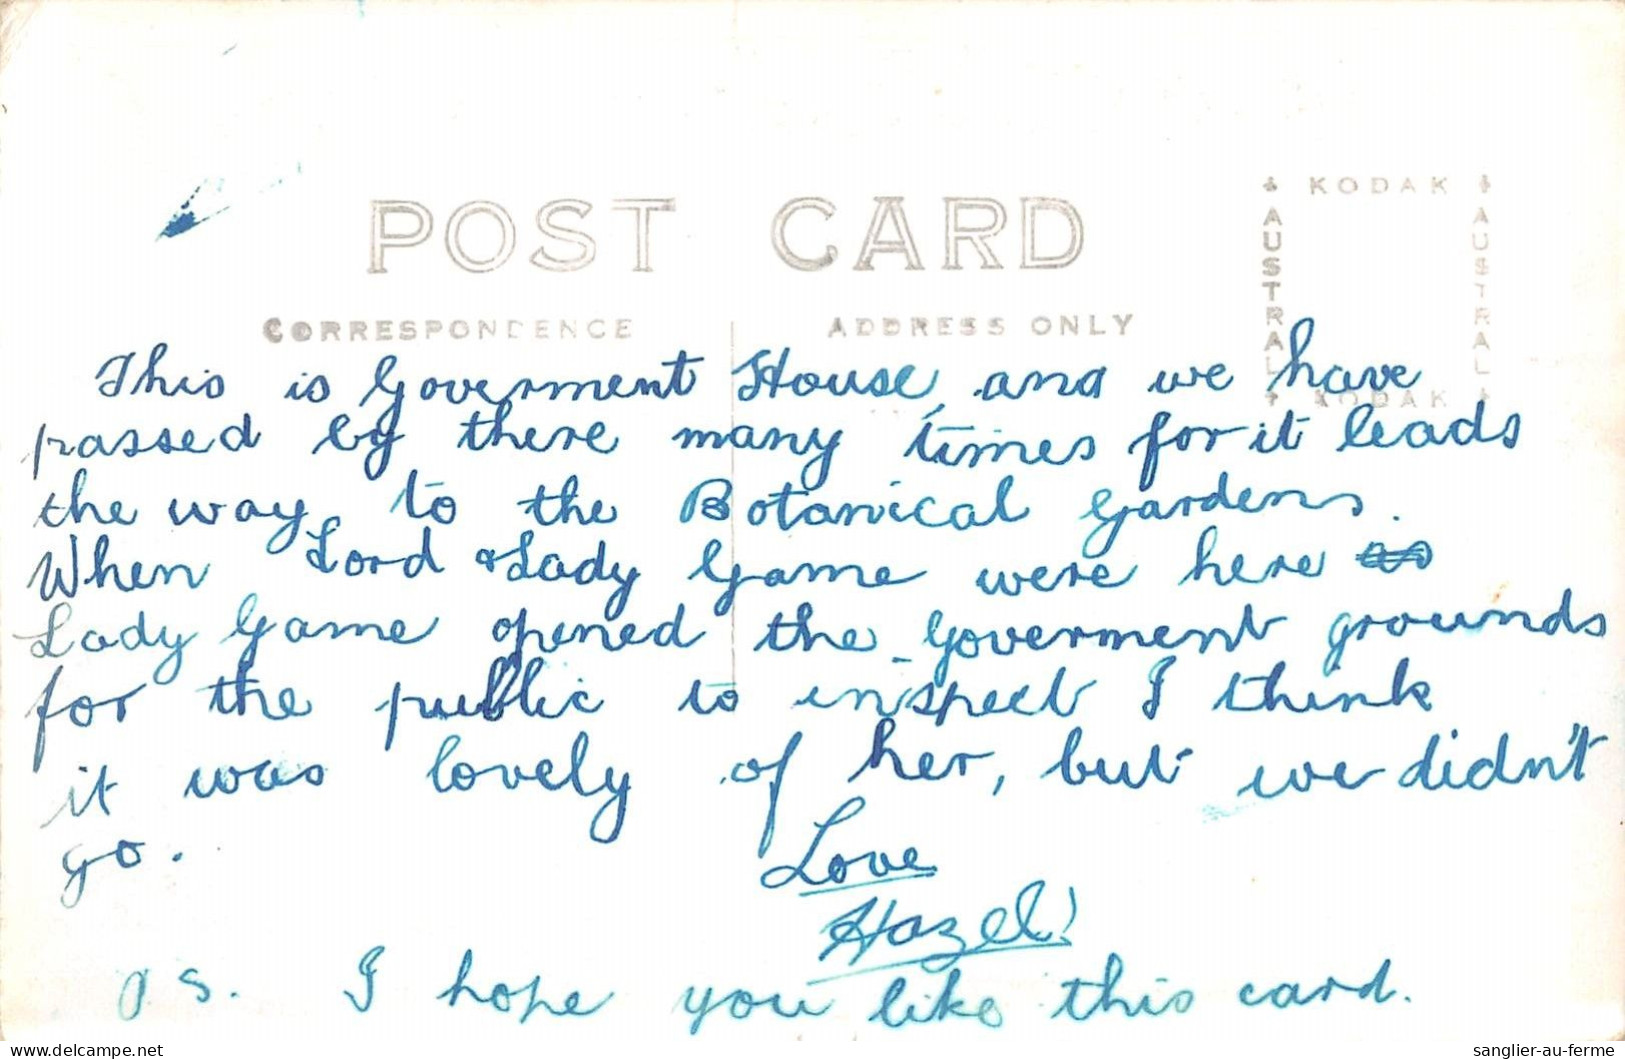 POST CARD
CORRESPONDENCE
ADDRESS ONLY
KODAK
AUSTRAL
AUSTRAL
KODAK
This is Goverment House, and we have
passed by there many times for it leads
the way to the Botanical Gardens.
When Lord & Lady Game were here
Lady Game opened the Goverment grounds
for the public to inspect I think
it was lovely of her, but we didn't
go.
Love
Hazel!
P.S. I hope you like this card.
delcampe.net
sanglier-au-ferme